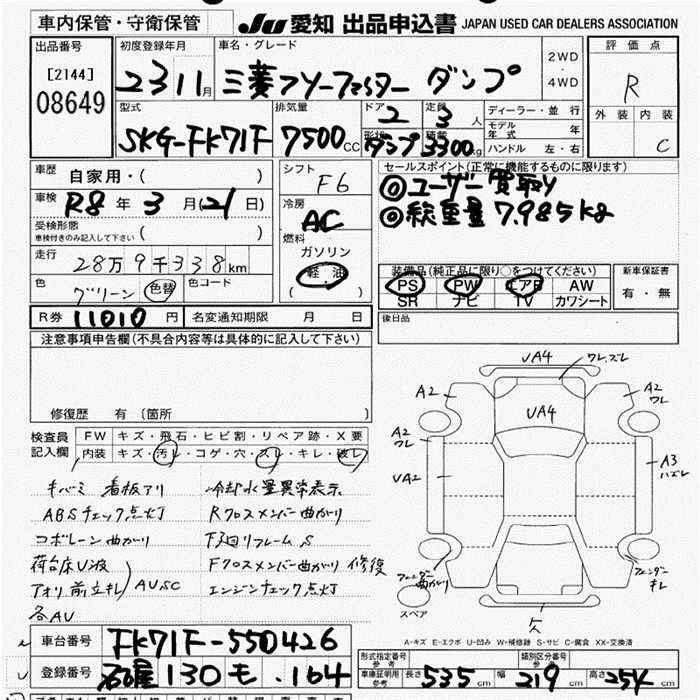 車内保管・守衛保管
JU 愛知 出品申込書 JAPAN USED CAR DEALERS ASSOCIATION
出品番号
[2144]
08649
初度登録年月
23 11月
車名・グレード
三菱フソーファイター ダンプ
2WD
・
4WD
評価点
R
外装 内装
C
型式
SKG-FK71F
排気量
7500cc
ドア
2
定員
3人
形状
ダンプ
積載
3300kg
ディーラー・並行
モデル年式 年
ハンドル 左・右
車歴
自家用・( )
車検
R8年3月(21日)
受検形態
車検付きのみ記入して下さい ( )
走行
28万9千338km
色
グリーン
色替
色コード
シフト
F6
冷房
AC
燃料
ガソリン
軽・油
( )
セールスポイント(正常に機能するものに限ります)
◎ユーザー買取り
◎総重量 7.985kg
装備品(純正品に限り○をつけてください)
PS PW エアB AW
SR ナビ TV カワシート
新車保証書
有・無
R券 11010円
名変通知期限 月 日
後日品
注意事項申告欄(不具合内容等は具体的に記入して下さい)
修復歴 有 [箇所 ]
検査員記入欄
FW キズ・飛石・ヒビ割・リペア跡・X要
内装 キズ・汚レ・コゲ・穴・スレ・キレ・破レ
キバミ 看板アリ
冷却水量異常表示
ABSチェック点灯
Rクロスメンバー曲がり
コボレーン曲がり
下廻リフレームS
荷台床U波
Fクロスメンバー曲がり 修復
アオリ前立キレ) AUSC
エンジンチェック点灯
各AU
UA4
ワレ.ズレ
A2
UA4
A2
ワレ
A2
ワレ
UA2
A3
ハズレ
フェンダー
曲がり
フェンダー
キレ
スペア
欠
A-キズ E-エクボ U-凹み W-補修跡 S-サビ C-腐食 XX-交換済
車台番号
FK71F-550426
登録番号
名古屋 130 も .164
形式指定番号
参考
類別区分番号
参考
車庫証明用参考
長さ 535cm 幅 219cm 高さ 254cm